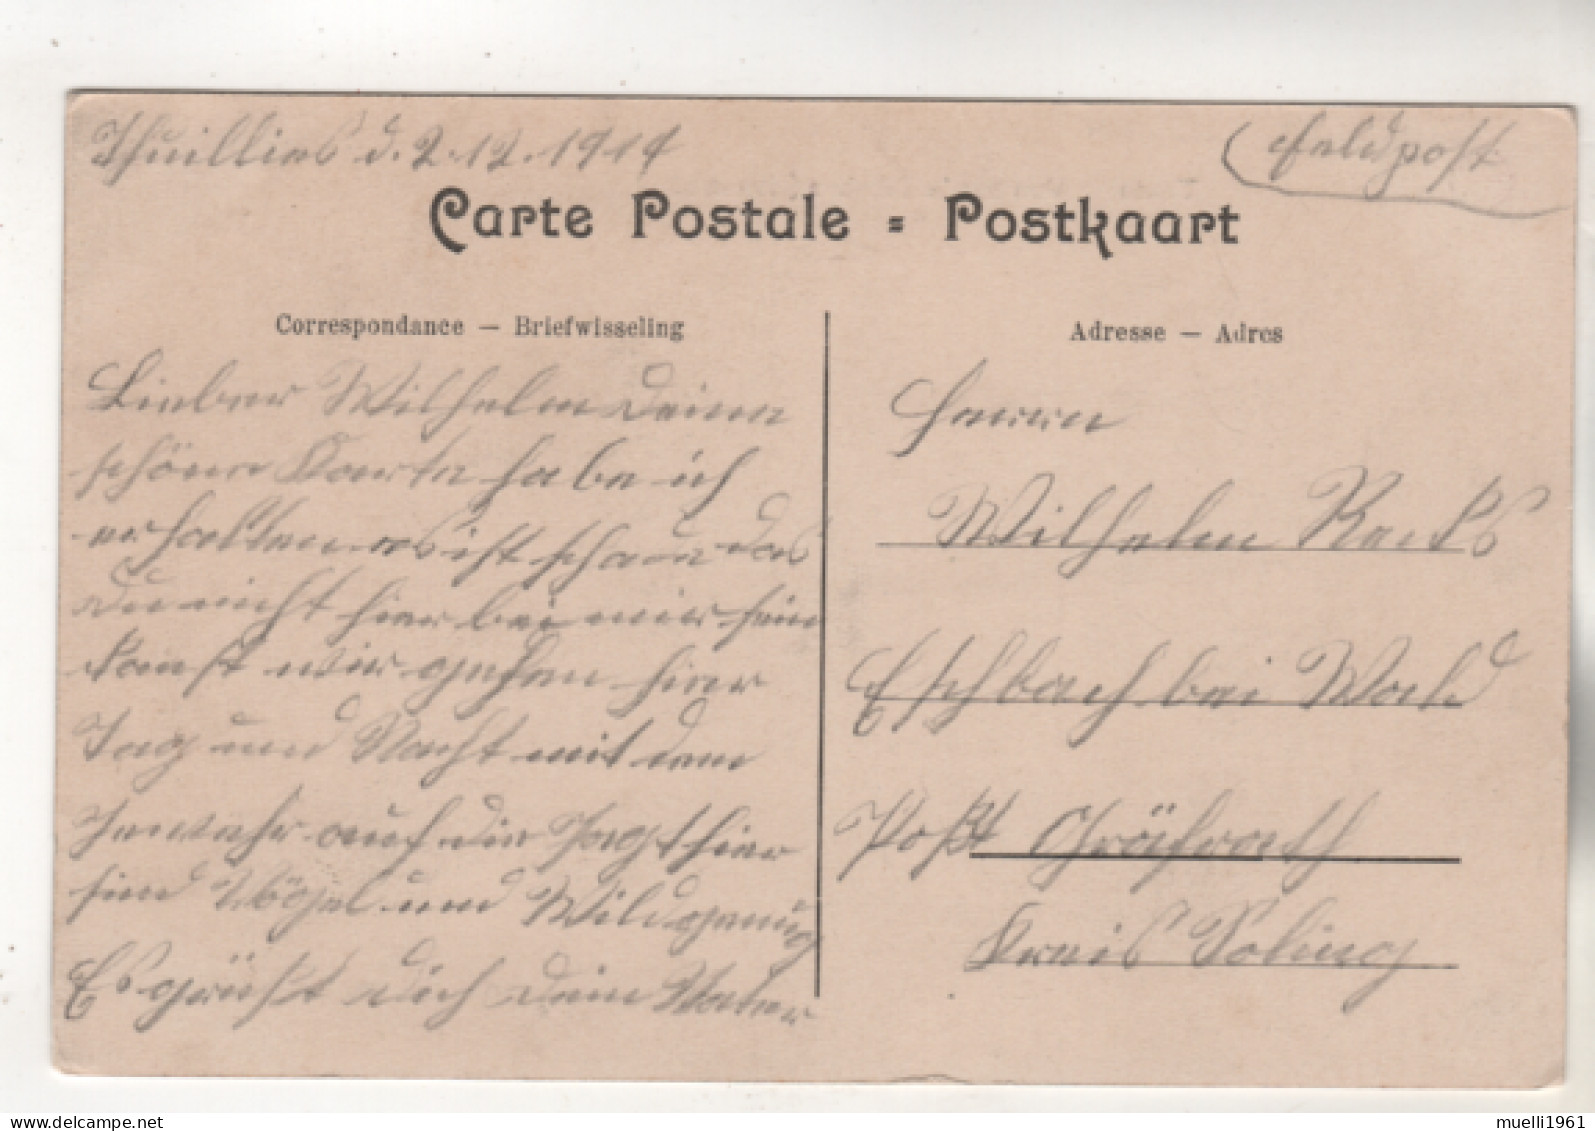 Thuillies d. 2.12.1914
Feldpost
Carte Postale = Postkaart
Correspondance — Briefwisseling
Adresse — Adres
Lieber Wilhelm Deine
schöne Karte habe ich
erhalten es ist schade das
Du nicht hier bei mir sein
kanst wir gehen hier
Tag und Nacht mit dem
Gewehr auf die Jagt hier
sind Vögel und Wild genug
Es grüßt dich dein Vater
Herrn
Wilhelm
Eschbach bei Wald
Post Gräfrath
Kreis Soling
www.delcampe.net
muelli1961